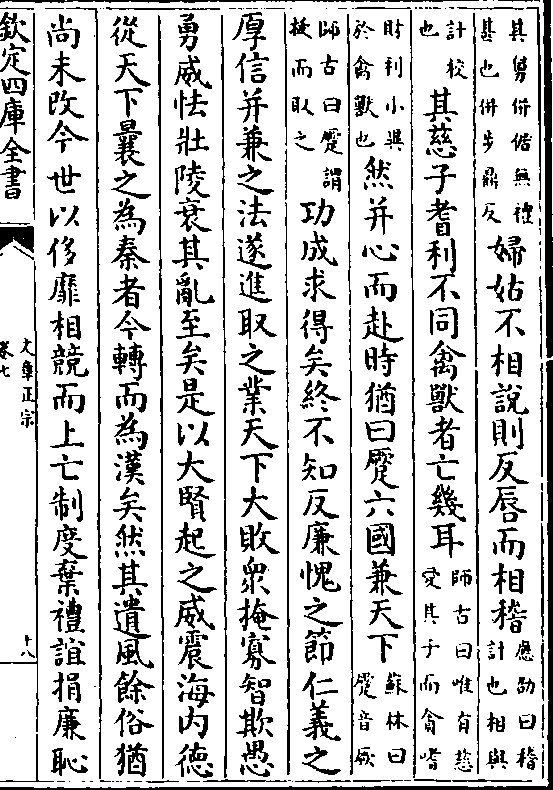 其舅併倨無禮
甚也併步鼎反
婦姑不相說則反唇而相稽
應劭曰稽
計也相與
計校
也
其慈子耆利不同禽獸者亡幾耳
師古曰唯有慈
愛其子而貪嗜
財利小異
於禽獸也
然并心而赴時猶曰蹷六國兼天下
蘇林曰
蹷音厥
師古曰蹷謂
拔而取之
功成求得矣終不知反廉愧之節仁義之
厚信并兼之法遂進取之業天下大敗衆掩寡智欺愚
勇威怯壯陵衰其亂至矣是以大賢起之威震海内德
從天下曩之為秦者今轉而為漢矣然其遺風餘俗猶
尚未改今世以侈靡相競而上亡制度棄禮誼捐廉恥
欽定四庫全書
文章正宗
卷七
十八